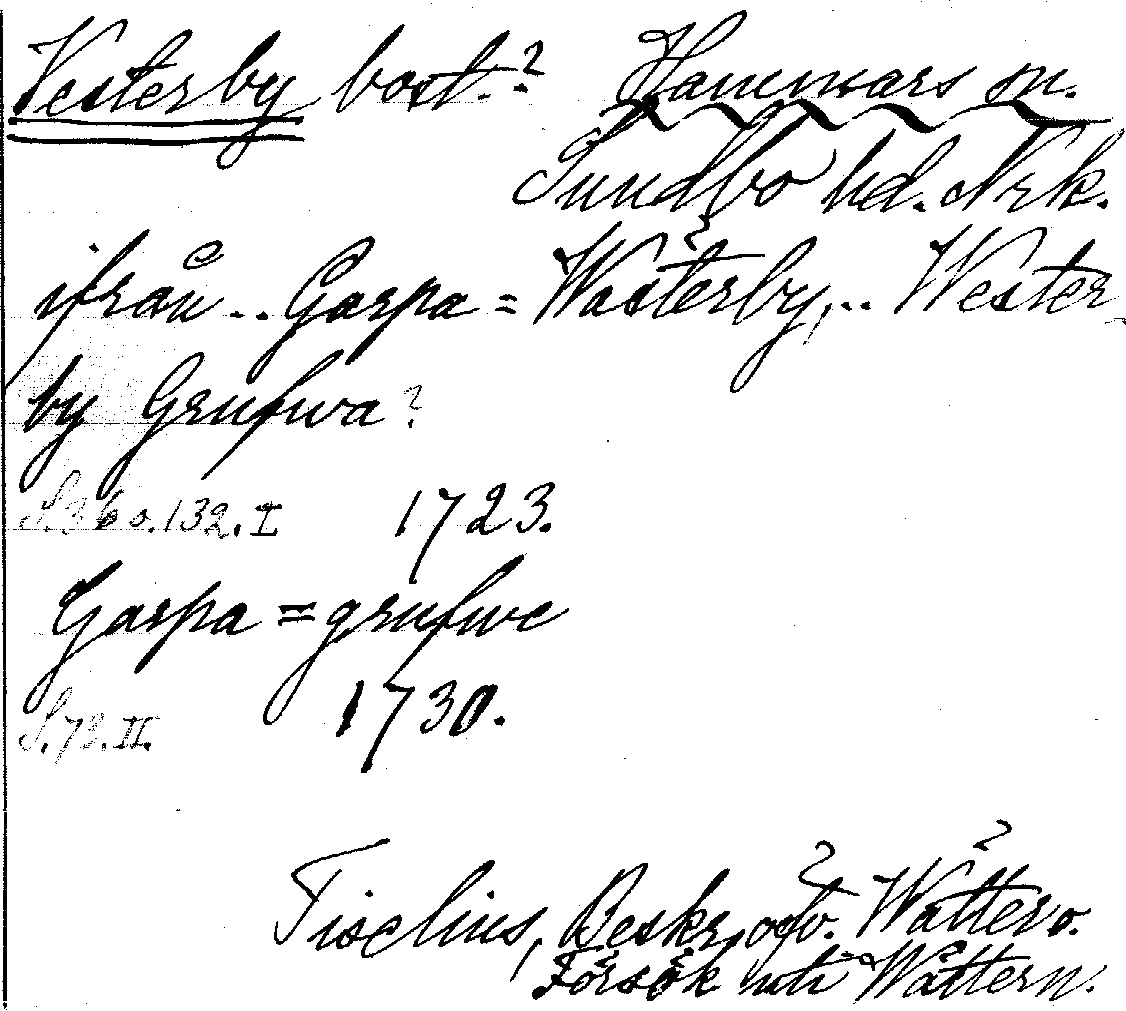 Vesterby bost.? Hammars sn.
Sundbo hd. Nrk.
ifrån .. Gaspa = Wästerby, .. Wester-
by Grufwa?
S. 360. 132. I 1723.
Gaspa = grufwe
S. 73. II. 1730.
Tiselius, Beskr. öfv. Wätter o.
Försök uti Wättern.